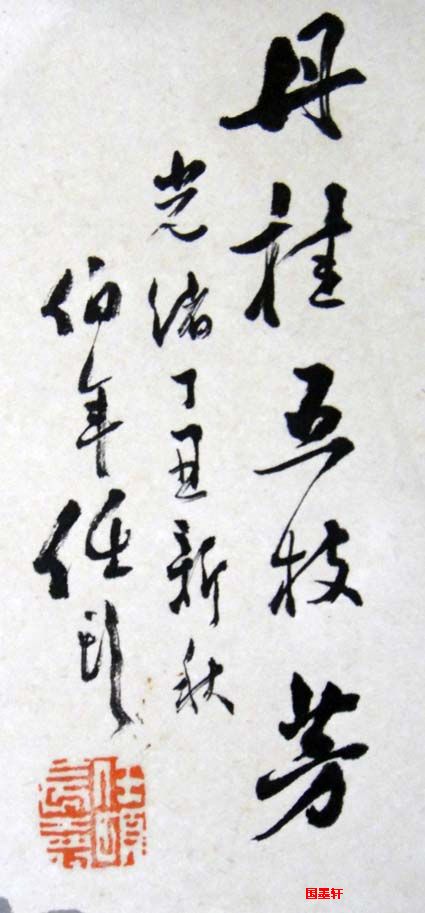 丹桂五枝芳
光緒丁丑新秋
伯年任頤
国墨轩